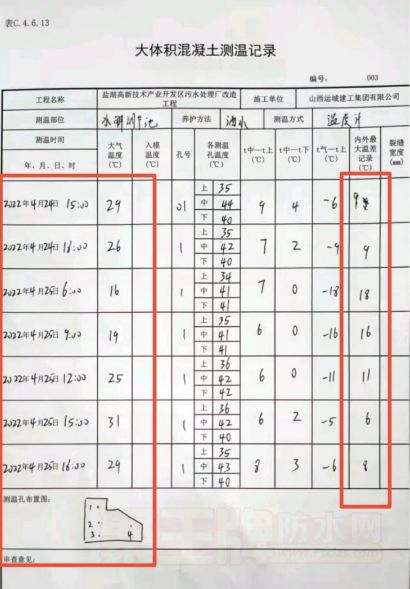 表C.4.6.13
大体积混凝土测温记录
编号: 003
工程名称 盐湖高新技术产业开发区污水处理厂改造工程 施工单位 山西运城建工集团有限公司
测温部位 水解调节池 养护方法 洒水 测温方式 温度计
测温时间 年、月、日、时 大气温度(℃) 入模温度(℃) 孔号 各测温孔温度(℃) t中一t上(℃) t中一t下(℃) t气一t上(℃) 内外最大温差记录(℃) 裂缝宽度(mm)
上 35
2022年4月24日 15:00 29 01 中 44 9 4 -6 9
下 40
上 35
2022年4月24日 18:00 26 1 中 42 7 2 -9 9
下 40
上 34
2022年4月25日 6:00 16 1 中 41 7 0 -18 18
下 41
上 35
2022年4月25日 9:00 19 1 中 41 6 0 -16 16
下 41
上 36
2022年4月25日 12:00 25 1 中 42 6 0 -11 11
下 42
上 36
2022年4月25日 15:00 31 1 中 42 6 2 -5 6
下 40
上 35
2022年4月25日 16:00 29 1 中 43 8 3 -6 8
下 40
测温孔布置图:
1
2
3 4
防水网
审查意见: